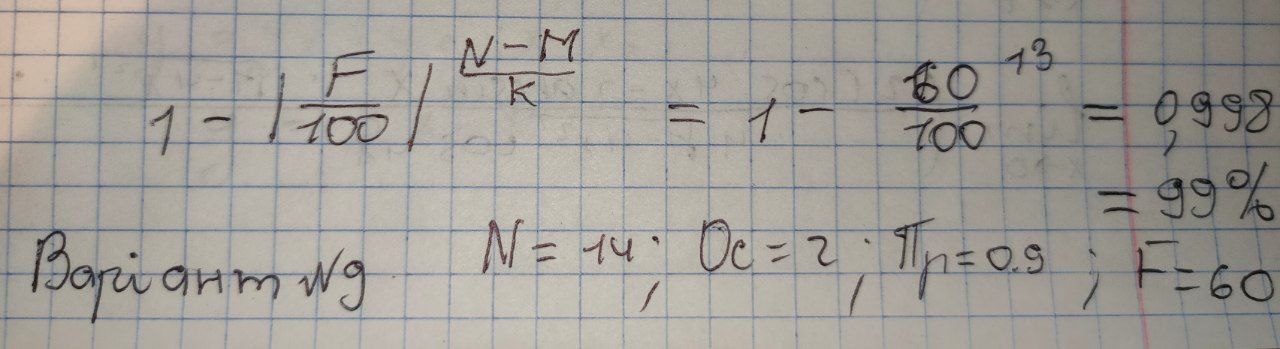 1 - |F/100|^((N-M)/K) = 1 - 60/100^13 = 0,998
= 99%
Варіант №9 N = 14; Ос = 2; Пр = 0.9; F = 60